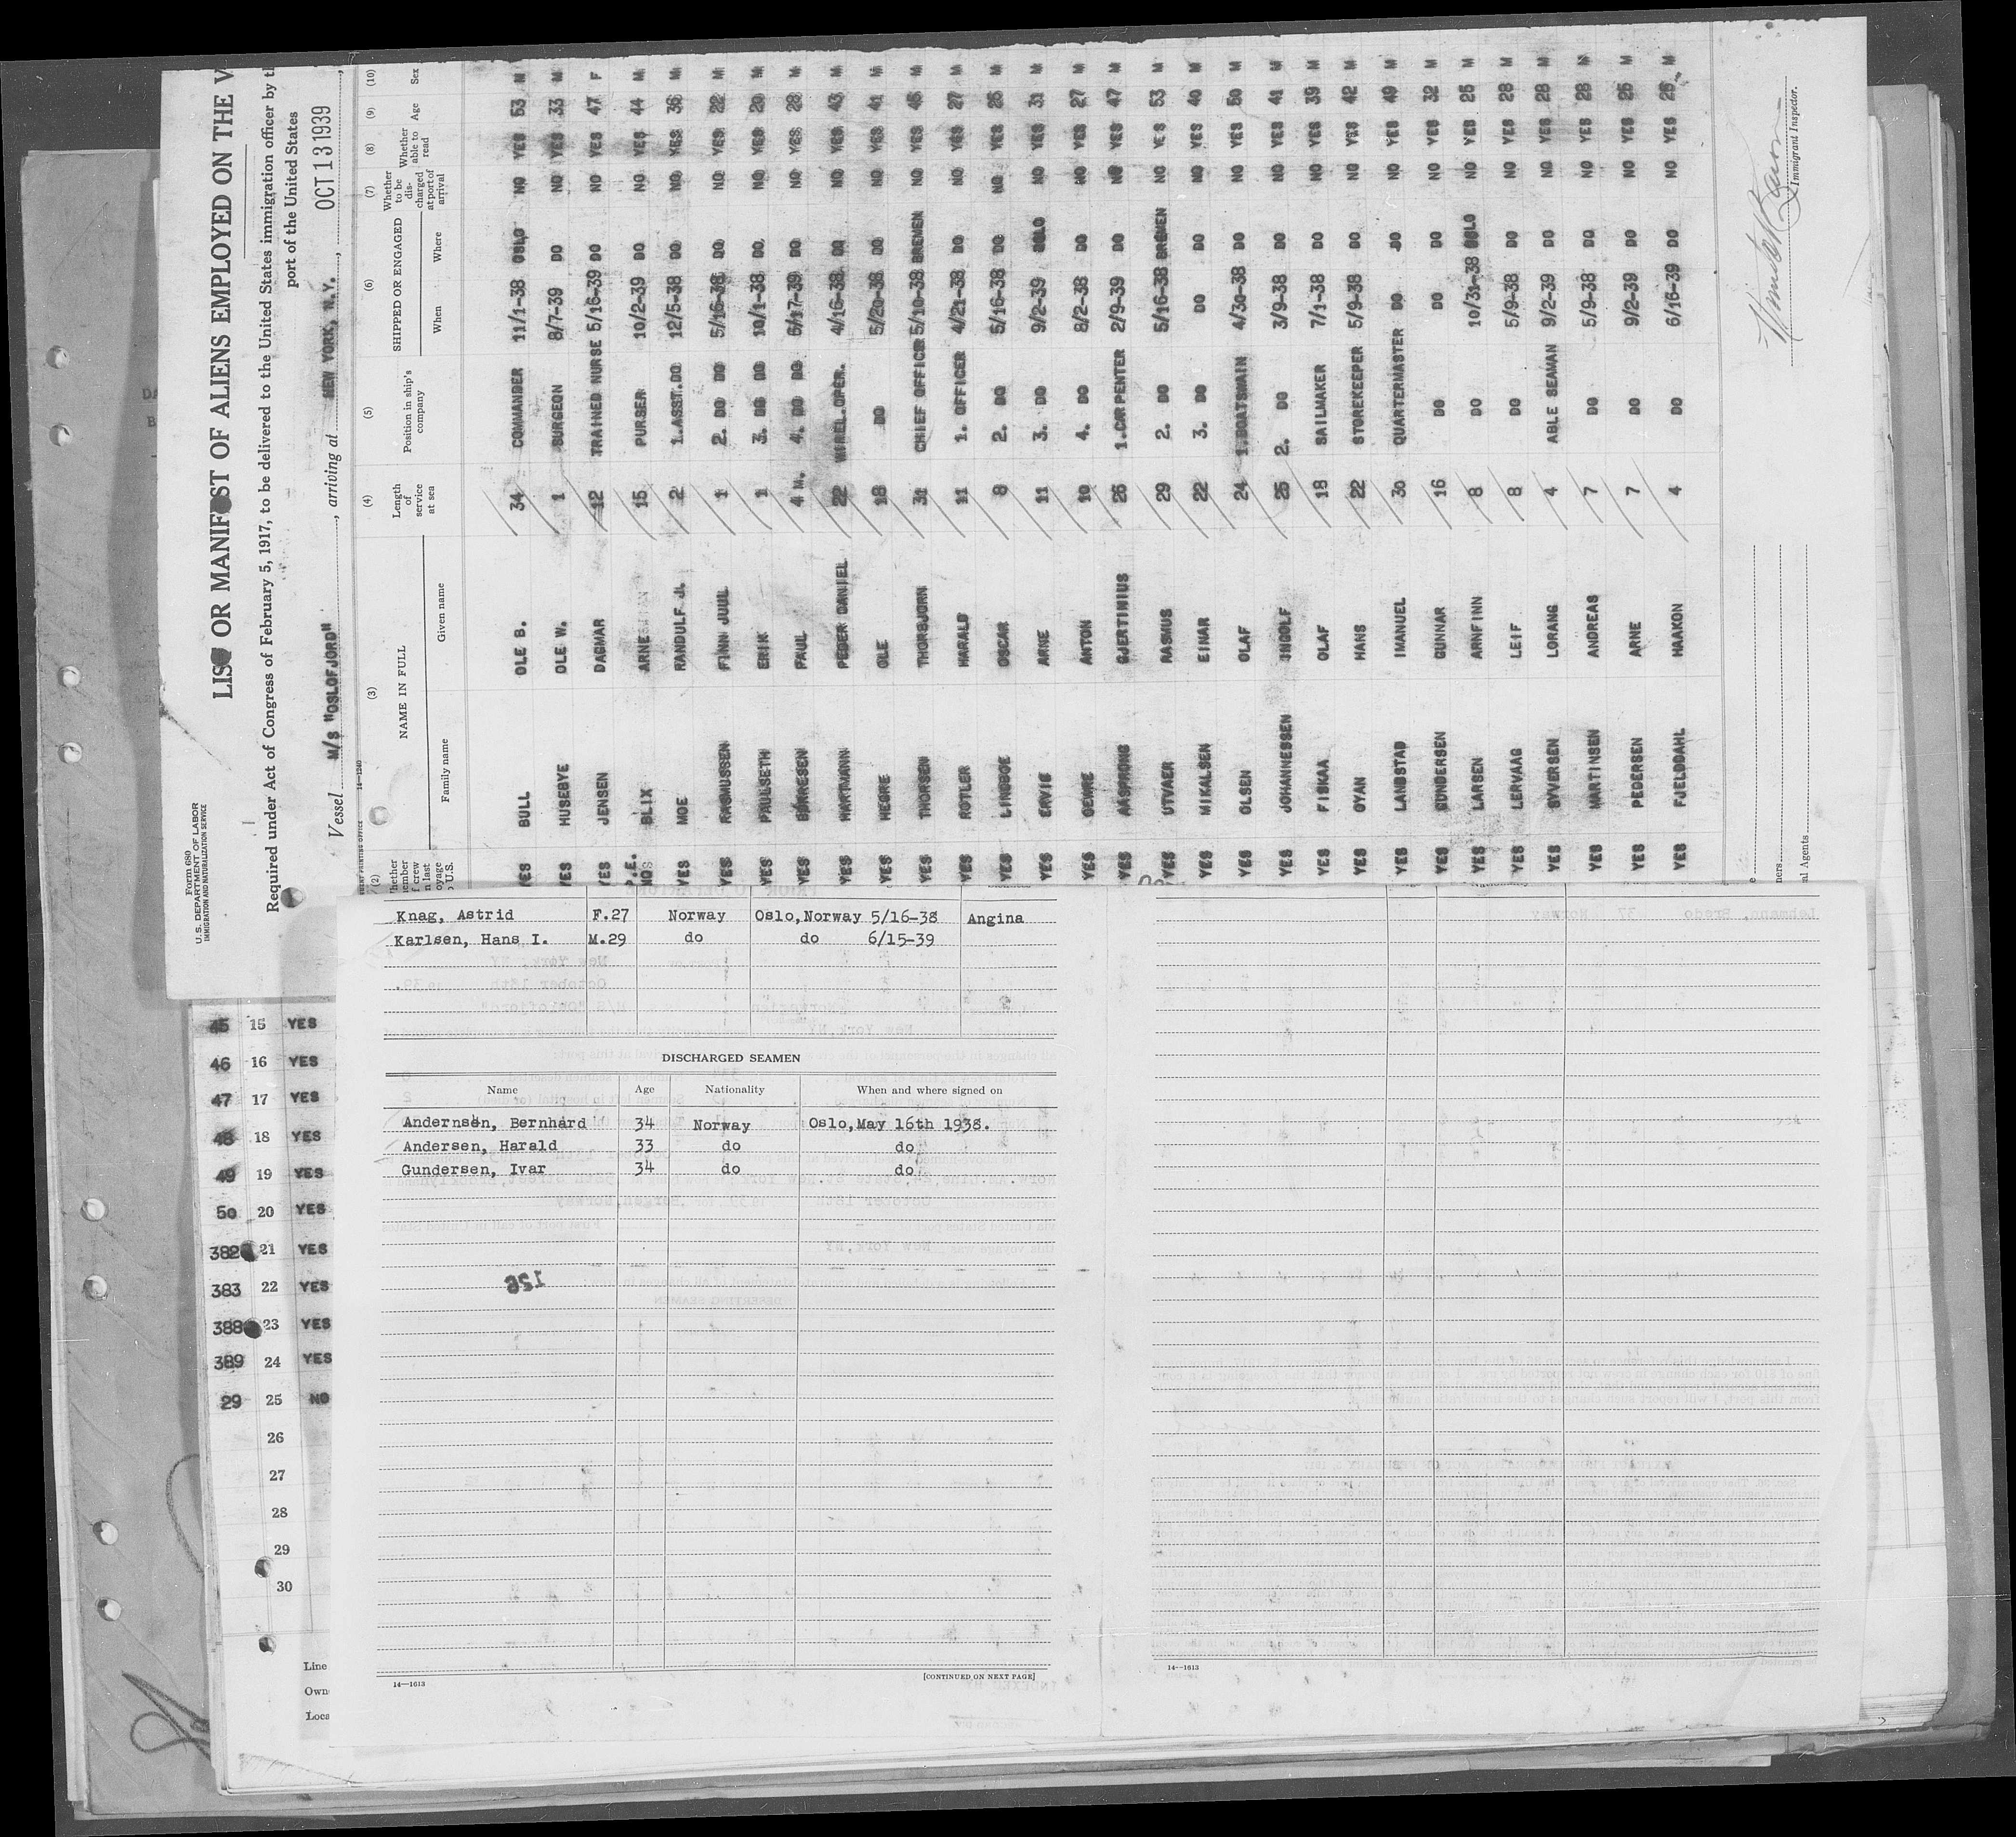 U.S. DEPARTMENT OF LABOR
IMMIGRATION AND NATURALIZATION SERVICE
Form 680
LIST OR MANIFEST OF ALIENS EMPLOYED ON THE V
Required under Act of Congress of February 5, 1917, to be delivered to the United States immigration officer by th
port of the United States
Vessel M/S "OSLOFJORD", arriving at NEW YORK, N.Y., OCT 13 1939
(2) (3) (4) (5) (6) (7) (8) (9) (10)
NAME IN FULL
Family name Given name
Length of service at sea
Position in ship's company
SHIPPED OR ENGAGED
When Where
Whether to be discharged at port of arrival
Whether able to read
Age
Sex
YES BULL OLE B. 34 COMMANDER 11/1-38 OSLO NO YES 53 M
YES HUSEBYE OLE W. 1 SURGEON 8/7-39 DO NO YES 33 M
YES JENSEN DAGMAR 12 TRAINED NURSE 5/16-39 DO NO YES 47 F
P.E. NO BLIX ARNE 15 PURSER 10/2-39 DO NO YES 44 M
YES MOE RANDULF J. 2 1.ASST.DO 12/5-38 DO NO YES 36 M
YES RASMUSSEN FINN JUUL 1 2. DO DO 5/16-38 DO NO YES 22 M
YES PAULSETH ERIK 1 3. DO DO 10/1-38 DO. NO YES 20 M
YES BØRRESEN PAUL 4 M. 4. DO DO 6/17-39 DO NO YES 28 M
YES HARTMANN PEDER DANIEL 22 WIREL.OPER. 4/16-38 DO NO YES 43 M
YES HEGRE OLE 18 DO 5/20-38 DO NO YES 41 M
YES THORSEN THORBJORN 31 CHIEF OFFICER 5/10-38 BREMEN NO YES 45 M
YES ROTLER HARALD 11 1. OFFICER 4/21-38 DO NO YES 27 M
YES LINDBOE OSCAR 8 2. DO 5/16-38 DO NO YES 25 M
YES ERVIG ARNE 11 3. DO 9/2-39 OSLO NO YES 31 M
YES ANTON 10 4. DO 8/2-38 DO NO YES 27 M
YES AASPRONG GJERTINIUS 26 1.CARPENTER 2/9-39 DO NO YES 47 M
YES UTVAER RASMUS 29 2. DO 5/16-38 BREMEN NO YES 53 M
YES MIKALSEN EINAR 22 3. DO DO DO NO YES 40 M
YES OLSEN OLAF 24 1.BOATSWAIN 4/30-38 DO NO YES 50 M
YES JOHANNESSEN INGOLF 25 2. DO 3/9-38 DO NO YES 41 M
YES FISKAA OLAF 18 SAILMAKER 7/1-38 DO NO YES 39 M
YES OYAN HANS 22 STOREKEEPER 5/9-38 DO NO YES 42 M
YES LANDSTAD IMANUEL 30 QUARTERMASTER DO DO NO YES 49 M
YES GUNDERSEN GUNNAR 16 DO DO DO NO YES 32 M
YES LARSEN ARNFINN 8 DO 10/31-38 OSLO NO YES 25 M
YES LERVAAG LEIF 8 DO 5/9-38 DO NO YES 28 M
YES SYVERSEN LORANG 4 ABLE SEAMAN 9/2-39 DO NO YES 28 M
YES MARTINSEN ANDREAS 7 DO 5/9-38 DO NO YES 28 M
YES PEDERSEN ARNE 7 DO 9/2-39 DO NO YES 25 M
YES FJELDDAHL HAAKON 4 DO 6/16-39 DO NO YES 26 M
Immigrant Inspector.
ners
al Agents
Knag, Astrid F.27 Norway Oslo,Norway 5/16-38 Angina
Karlsen, Hans I. M.29 do do 6/15-39
DISCHARGED SEAMEN
Name Age Nationality When and where signed on
Andernsen, Bernhard 34 Norway Oslo,May 16th 1938.
Andersen, Harald 33 do do
Gundersen, Ivar 34 do do
126
14—1613
[CONTINUED ON NEXT PAGE]
14—1613
45 15 YES
46 16 YES
47 17 YES
48 18 YES
49 19 YES
50 20 YES
382 21 YES
383 22 YES
388 23 YES
389 24 YES
29 25 NO
26
27
28
29
30
Line
Own
Loca